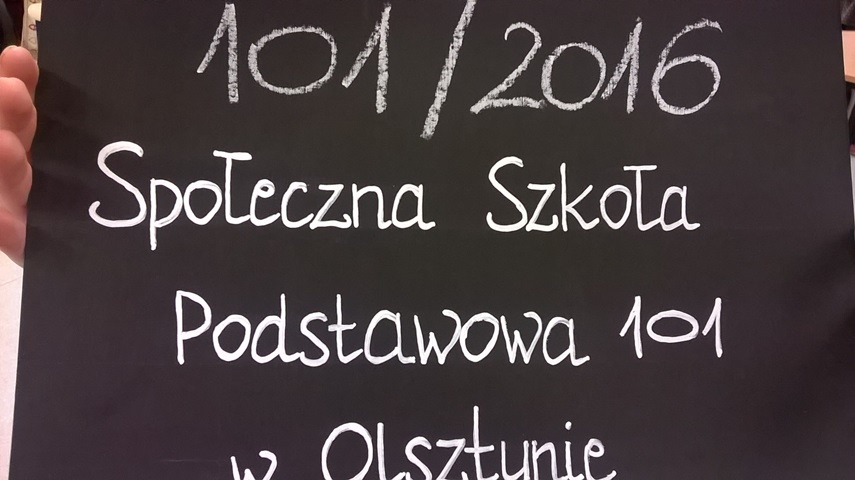 101/2016
Społeczna Szkoła
Podstawowa 101
w Olsztynie